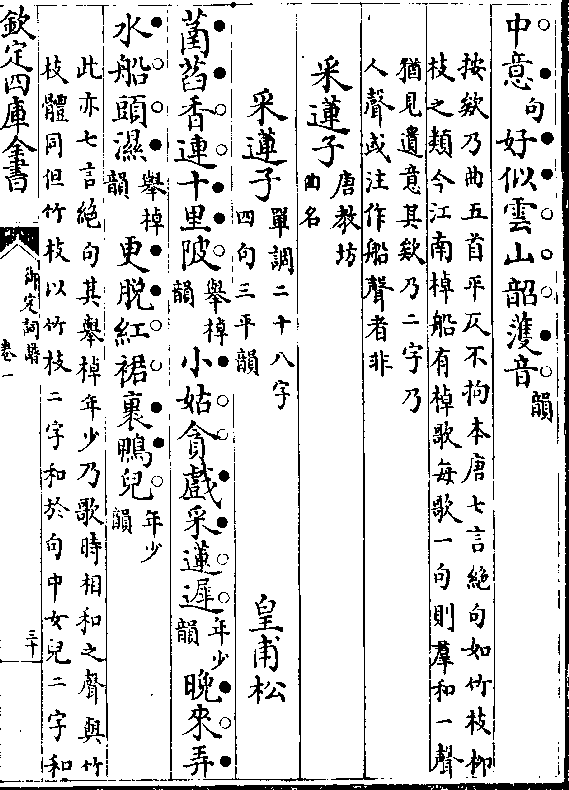 中意句好似雲山韶䕶音韻
按欸乃曲五首平仄不拘本唐七言絶句如竹枝栁
枝之類今江南棹船有棹歌每歌一句則羣和一聲
猶見遺意其欸乃二字乃
人聲或注作船聲者非
采蓮子唐教坊
曲名
采蓮子單調二十八字
四句三平韻 皇甫松
菡萏香連十里陂舉棹
韻小姑貪戲采蓮遲年少
韻晚來弄
水船頭濕舉棹
韻更脱紅裙裹鴨兒年少
韻
此亦七言絶句其舉棹年少乃歌時相和之聲與竹
枝體同但竹枝以竹枝二字和於句中女兒二字和
欽定四庫全書
御定詞譜
卷一
三十